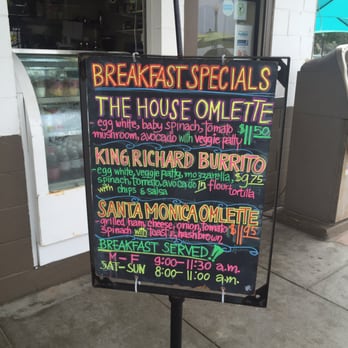 BREAKFAST SPECIALS
THE HOUSE OMLETTE
- egg white, baby spinach, tomato $11.50
mushroom, avocado with veggie patty
KING RICHARD BURRITO
- egg white, veggie patty, mozzarella, $9.75
spinach, tomato, avocado in flour tortilla
with chips & salsa
SANTA MONICA OMLETTE
- grilled ham, cheese, onion, tomato $11.95
spinach with toast & hashbrown
BREAKFAST SERVED!
M - F 9:00-11:30 a.m.
SAT-SUN 8:00-11:00 a.m.